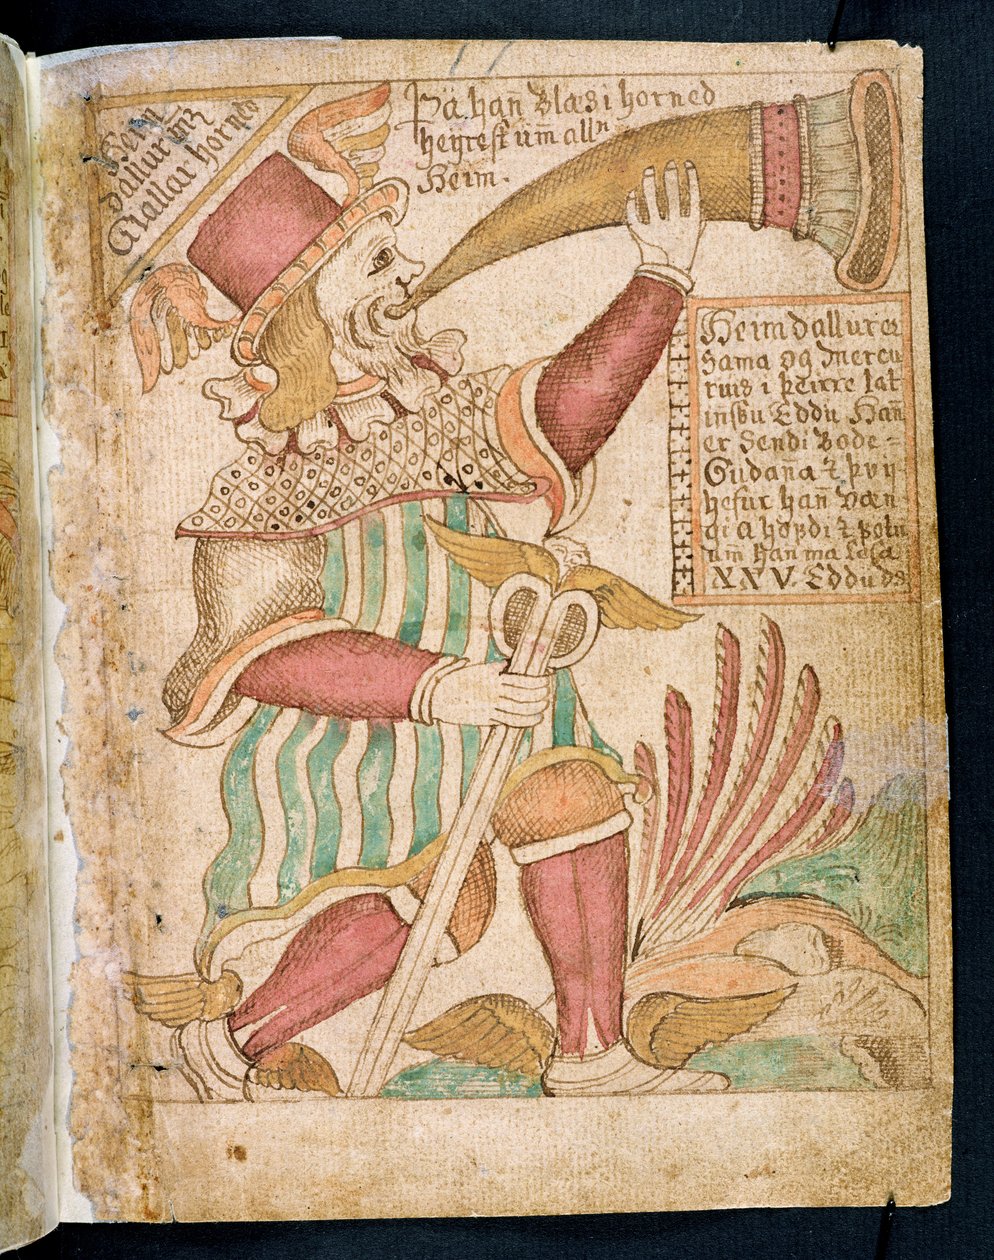 Heim
dallur m₃
Giallar horned
Þä han̄ blæs i horned
heyrest um̄ allⁿ
Heim.
Heimdallur er
sama og Mercu
rius i þeirre lat
insku Eddu Han̄
er Sendi Bode-
Gudan̄a
hefur han̄ Væn
gi a hofdi
um han̄ ma lesa
XXV. Eddu ds